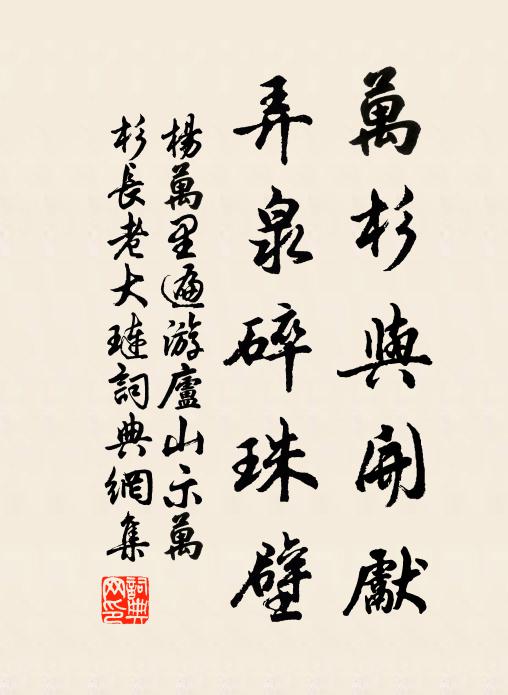 萬杉與開獻
弄泉碎珠璧
楊萬里遍游廬山示萬
杉長老大璉詞典網集
詞典網印